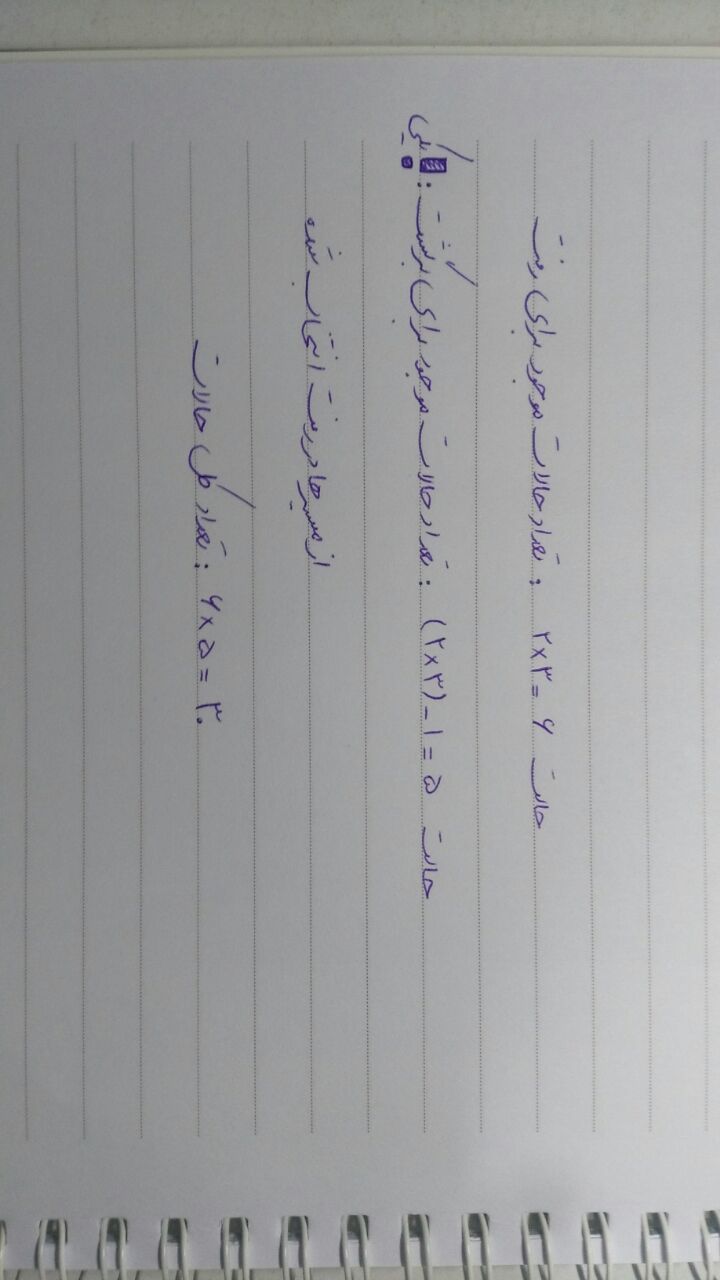 تعداد حالات موجود برای رفت : ۲×۳=۶ حالت
تعداد حالات موجود برای برگشت : (۲×۳)-۱=۵ حالت
یکی
از مسیرها در رفت انتخاب شده
تعداد کل حالات : ۶×۵=۳۰